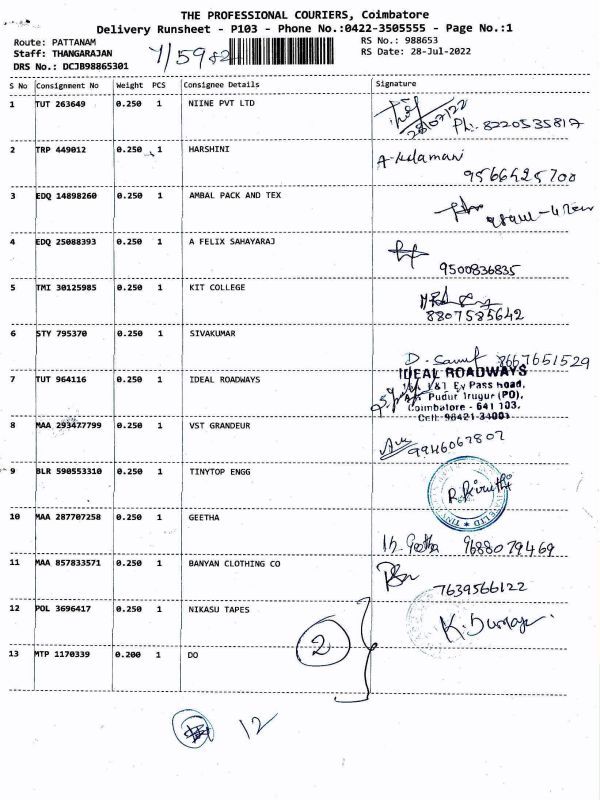 THE PROFESSIONAL COURIERS, Coimbatore
Delivery Runsheet - P103 - Phone No.:0422-3505555 - Page No.:1
Route: PATTANAM
RS No.: 988653
Staff: THANGARAJAN
RS Date: 28-Jul-2022
DRS No.: DCJB98865301
S No Consignment No Weight PCS Consignee Details Signature
1 TUT 263649 0.250 1 NIINE PVT LTD
28/07/22 Ph: 8220535817
2 TRP 449012 0.250 1 HARSHINI
9566425700
3 EDQ 14898260 0.250 1 AMBAL PACK AND TEX
4 EDQ 25088393 0.250 1 A FELIX SAHAYARAJ
9500836835
5 TMI 30125985 0.250 1 KIT COLLEGE
8807585642
6 STY 795370 0.250 1 SIVAKUMAR
8667651529
7 TUT 964116 0.250 1 IDEAL ROADWAYS
IDEAL ROADWAYS
Pudur Irugur (PO),
Coimbatore - 641 103.
8 MAA 293477799 0.250 1 VST GRANDEUR
9946067807
9 BLR 590553310 0.250 1 TINYTOP ENGG
10 MAA 287707258 0.250 1 GEETHA
Geetha 9688079469
11 MAA 857833571 0.250 1 BANYAN CLOTHING CO
7639566122
12 POL 3696417 0.250 1 NIKASU TAPES
13 MTP 1170339 0.200 1 DO
2
12